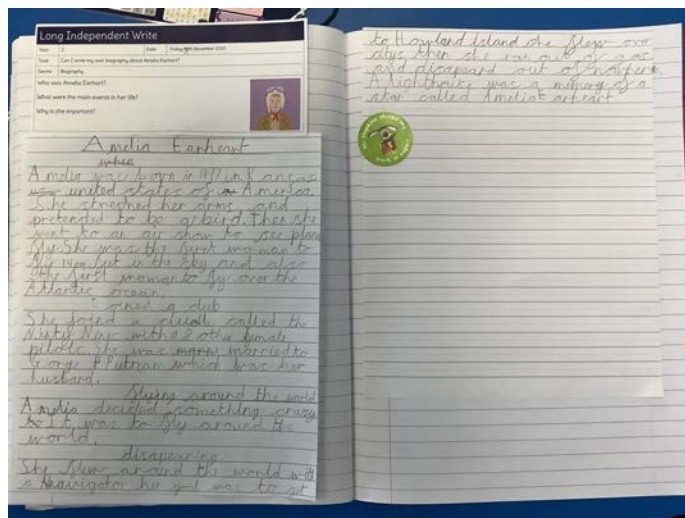 Long Independent Write
Year 2 Date Friday November
Task Can I write my own biography about Amelia Earhart?
Genre Biography
Who was Amelia Earhart?
What were the main events in her life?
Why is she important?
Amelia Earheart
when
Amelia was born in in kansas
united states of America.
She streched her arms and
pretended to be a bird. Then she
went to an air show to see plane
fly. She was the first woman to
fly feet in the sky and also
the first woman to fly over the
Atlantic ocean.
I joined a club
She joind a club called the
Ninty Nines with 98 other female
pilots. She was married to
Gorge P Putnam which was her
husband.
flying around the world
Amelia decided something crazy
It was to fly around the
world.
disapearing
She flew around the world with
a navigator her goal was to get
to Howland Island she flew over
then she ran out of gas
and disapeard out of nowhere.
A lighthouse was a memory of a
star called Amelia earheart